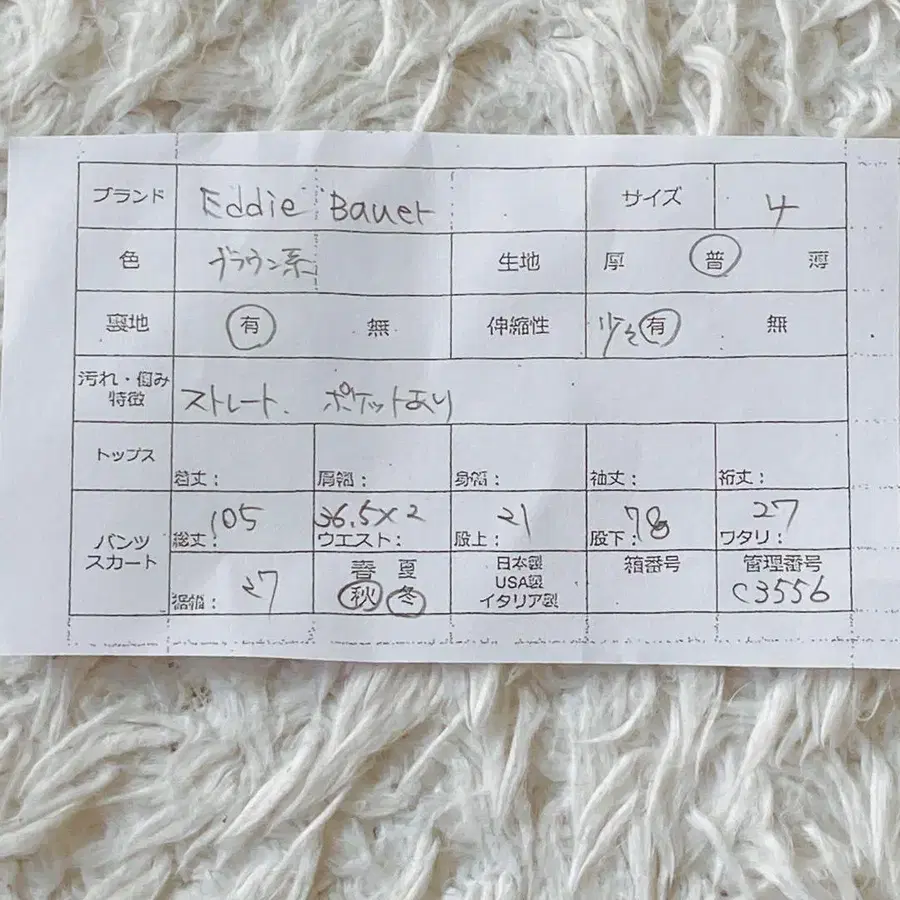 ブランド Eddie Bauer サイズ 4
色 ブラウン系 生地 厚 普 薄
裏地 有 無 伸縮性 少々有 無
汚れ・傷み
特徴 ストレート. ポケットあり
トップス 着丈: 肩幅: 身幅: 袖丈: 裄丈:
パンツ
スカート 総丈: 105 ウエスト: 36.5×2 股上: 21 股下: 78 ワタリ: 27
裾幅: 27 春 夏 秋 冬 日本製 USA製 イタリア製 箱番号 管理番号 C3556